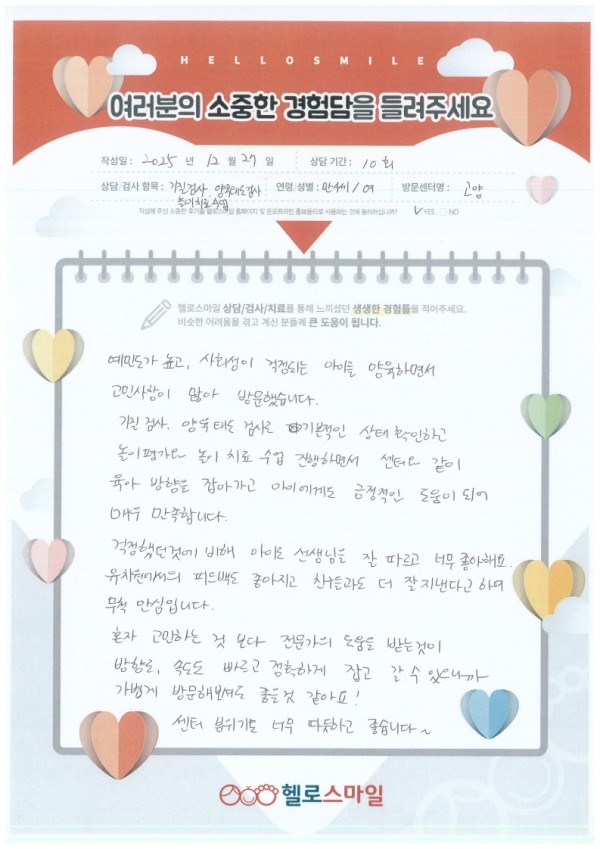 HELLOSMILE
여러분의 소중한 경험담을 들려주세요
작성일 : 2025 년 12 월 27 일 상담 기간 : 10회
상담/검사 항목 : 기질검사, 양육태도검사 연령/성별 : 만4세 / 여 방문센터명 : 고양
놀이치료수업
작성해 주신 소중한 후기를 헬로스마일 홈페이지 및 온오프라인 홍보용으로 사용하는 것에 동의하십니까? ✓YES □ NO
헬로스마일 상담/검사/치료를 통해 느끼셨던 생생한 경험들을 적어주세요.
비슷한 어려움을 겪고 계신 분들께 큰 도움이 됩니다.
예민도가 높고, 사회성이 걱정되는 아이를 양육하면서
고민사항이 많아 방문했습니다.
기질 검사, 양육 태도 검사로 기본적인 상태 확인하고
놀이평가와 놀이 치료 수업 진행하면서 센터와 같이
육아 방향을 잡아가고 아이에게도 긍정적인 도움이 되어
매우 만족합니다.
걱정했던것에 비해 아이도 선생님을 잘 따르고 너무 좋아해요.
유치원에서의 피드백도 좋아지고 친구들과도 더 잘지낸다고 하여
무척 안심입니다.
혼자 고민하는 것 보다 전문가의 도움을 받는것이
방향도, 속도도 빠르고 정확하게 잡고 갈 수 있으니까
가볍게 방문해보셔도 좋을것 같아요!
센터 분위기도 너무 따듯하고 좋습니다~
헬로스마일